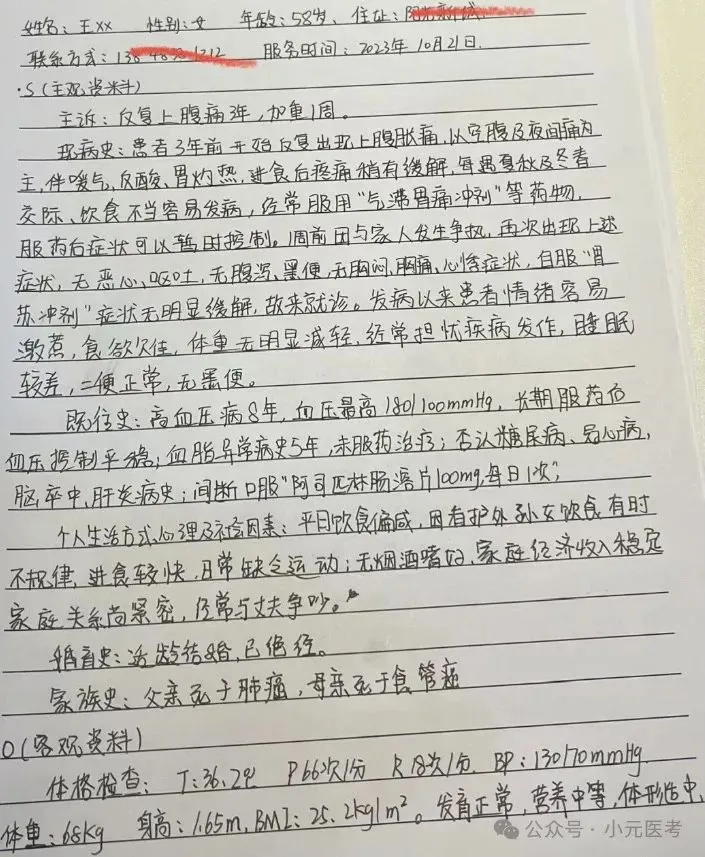 姓名：王xx 性别：女 年龄：58岁、住址：
联系方式：13 服务时间：2023年10月21日.
·S(主观资料)
主诉：反复上腹痛3年,加重1周。
现病史：患者3年前开始反复出现上腹胀痛,以空腹及夜间痛为
主,伴嗳气、反酸、胃灼热,进食后疼痛稍有缓解,每遇夏秋及冬春
交际、饮食不当容易发病,经常服用"气滞胃痛冲剂"等药物,
服药后症状可以暂时控制。1周前因与家人发生争执,再次出现上述
症状,无恶心、呕吐,无腹泻、黑便,无胸闷,胸痛,心悸症状,自服"胃
苏冲剂"症状无明显缓解,故来就诊。发病以来患者情绪容易
激惹,食欲欠佳,体重无明显减轻,经常担忧疾病发作,睡眠
较差,二便正常,无黑便。
既往史：高血压病8年,血压最高180/100mmHg,长期服药后
血压控制平稳;血脂异常病史5年,未服药治疗;否认糖尿病、冠心病,
脑卒中,肝炎病史;间断口服"阿司匹林肠溶片100mg,每日1次";
个人生活方式、心理及社会因素：平日饮食偏咸,因看护外孙女饮食有时
不规律,进食较快,日常缺乏运动;无烟酒嗜好,家庭经济收入稳定
家庭关系尚紧密,经常与丈夫争吵。
婚育史：适龄结婚,已绝经。
家族史：父亲死于肺癌,母亲死于食管癌
O(客观资料)
体格检查：T:36.2℃ P66次/分 R18次/分. BP:130/70mmHg.
体重:68kg 身高:1.65m,BMI:25.2kg/m²。发育正常,营养中等,体形适中,
公众号·小元医考